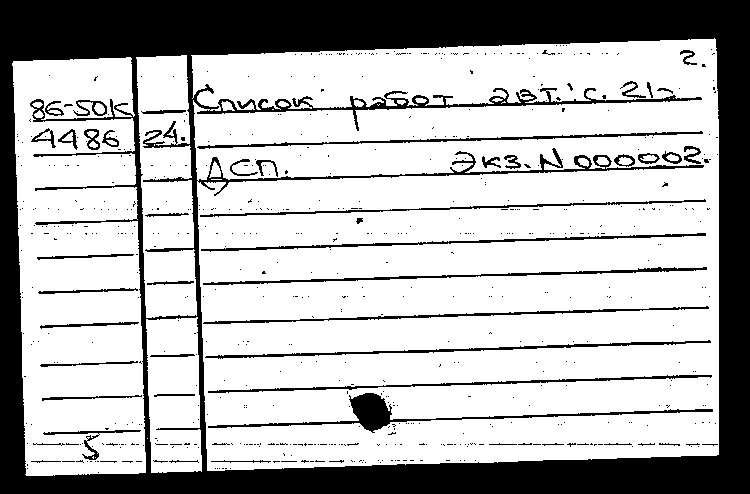 2.
86-50К Список работ авт.: с. 21
4486 24.
ДСП. Экз. N 000002.
5